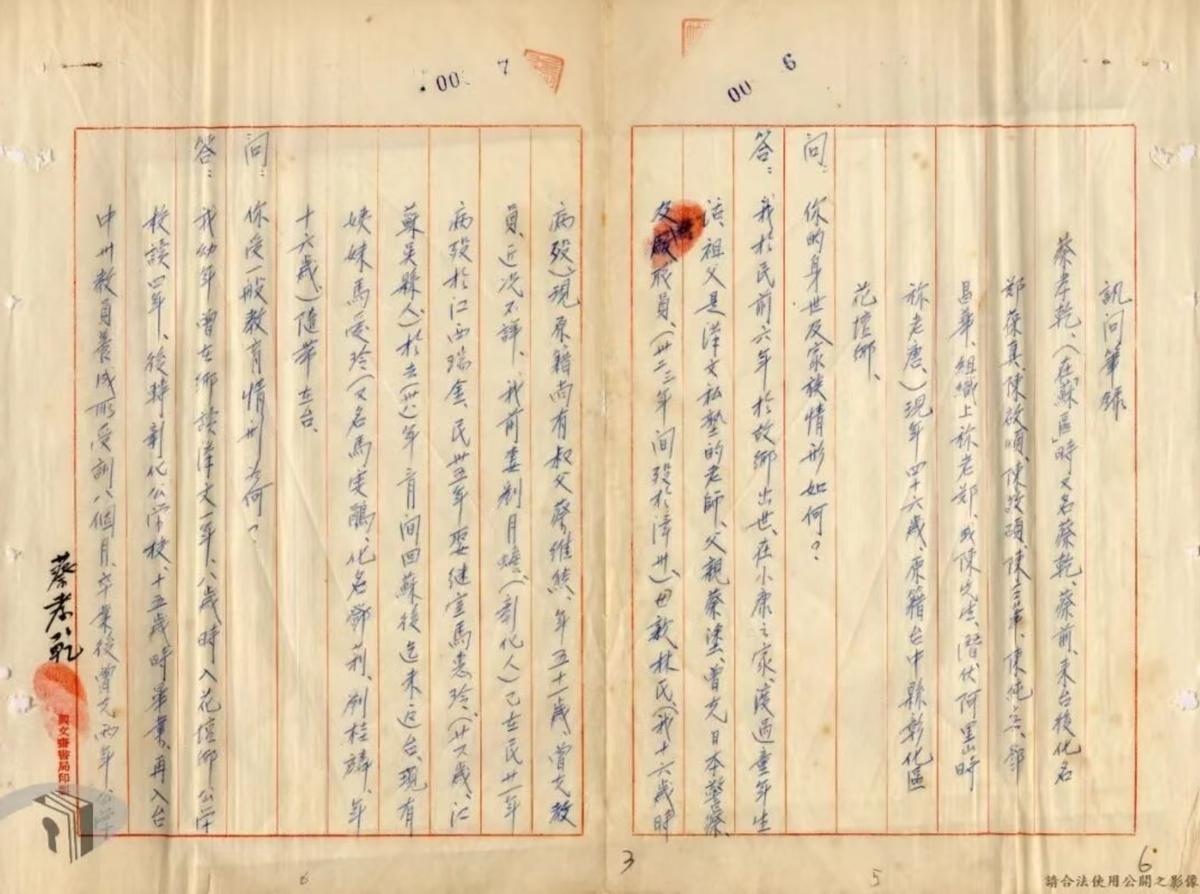 00 6
訊問筆錄
蔡孝乾、(在「蘇區」時又名蔡乾、蔡前、來台後化名
鄭葆真、陳啟順、陳 、陳 、陳純 、鄧
昌華、組織上称老鄭、或陳先生、潛伏阿里山時
称老唐、)現年四十六歲、原籍台中縣彰化區
花壇鄉、
問:你的身世及家族情形如何?
答:我於民前六年於故鄉出世、在小康之家、渡過童年生
活、祖父是漢文私塾的老師、父親蔡塗、曾充日本警察、
及 職員、(卅二三年間歿於漳州、)母親林氏(我十六歲時
00 7
病歿)、現原籍尚有叔父蔡維然、年五十一歲、曾充教
員、近況不詳、我前妻劉月蟾、(彰化人)已在民廿一年
病歿於江西瑞金、民卅五年娶繼室馬惠玲、(廿 歲、江
蘇吳縣人)於去(卅八)年 月間回蘇後迄未返台、現有
姨妹馬 玲(又名馬雯鵑、化名鄧莉、劉桂麟、年
十六歲)隨帶在台、
問:你受一般教育情形如何?
答:我幼年曾在鄉讀漢文一年、八歲時入花壇鄉公学
校讀四年、後轉彰化公学校、十五歲時畢業、再入台
中州教員養成所受訓八個月、卒業後曾充兩年公学
蔡孝乾
6
5
3
6
請合法使用公開之影像